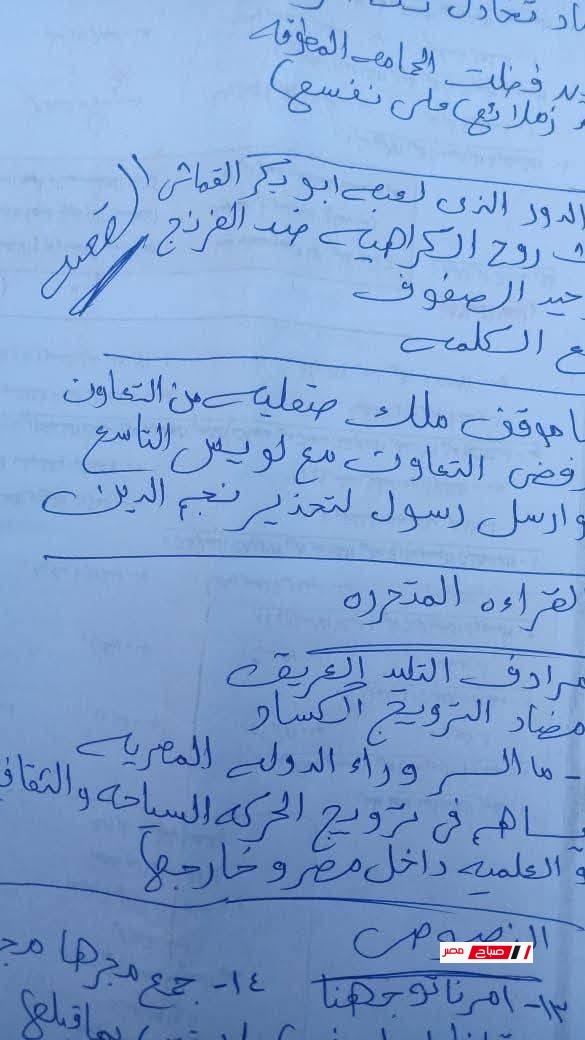 اد تعادل
فضلت الحمامه المطوقه
زملائها على نفسها
الدور الذى لعبه ابو بكر القماش
روح الكراهيه ضد الفرنج
حيد الصفوف
ع الكلمه
ا موقف ملك صقليه من التعاون
رفض التعاون مع لويس التاسع
وارسل رسول لتحذير نجم الدين
لقراءه المتحرره
مرادف التليد العريق
مضاد الترويج الكساد
- ما السر وراء الدوله المصريه
ساهم فى ترويج الحركه السياحه والثقافي
ة العلميه داخل مصر وخارجها
النصوص
صباح مصر
١٣- امرنا توجهنا ١٤- جمع مجرها مجر